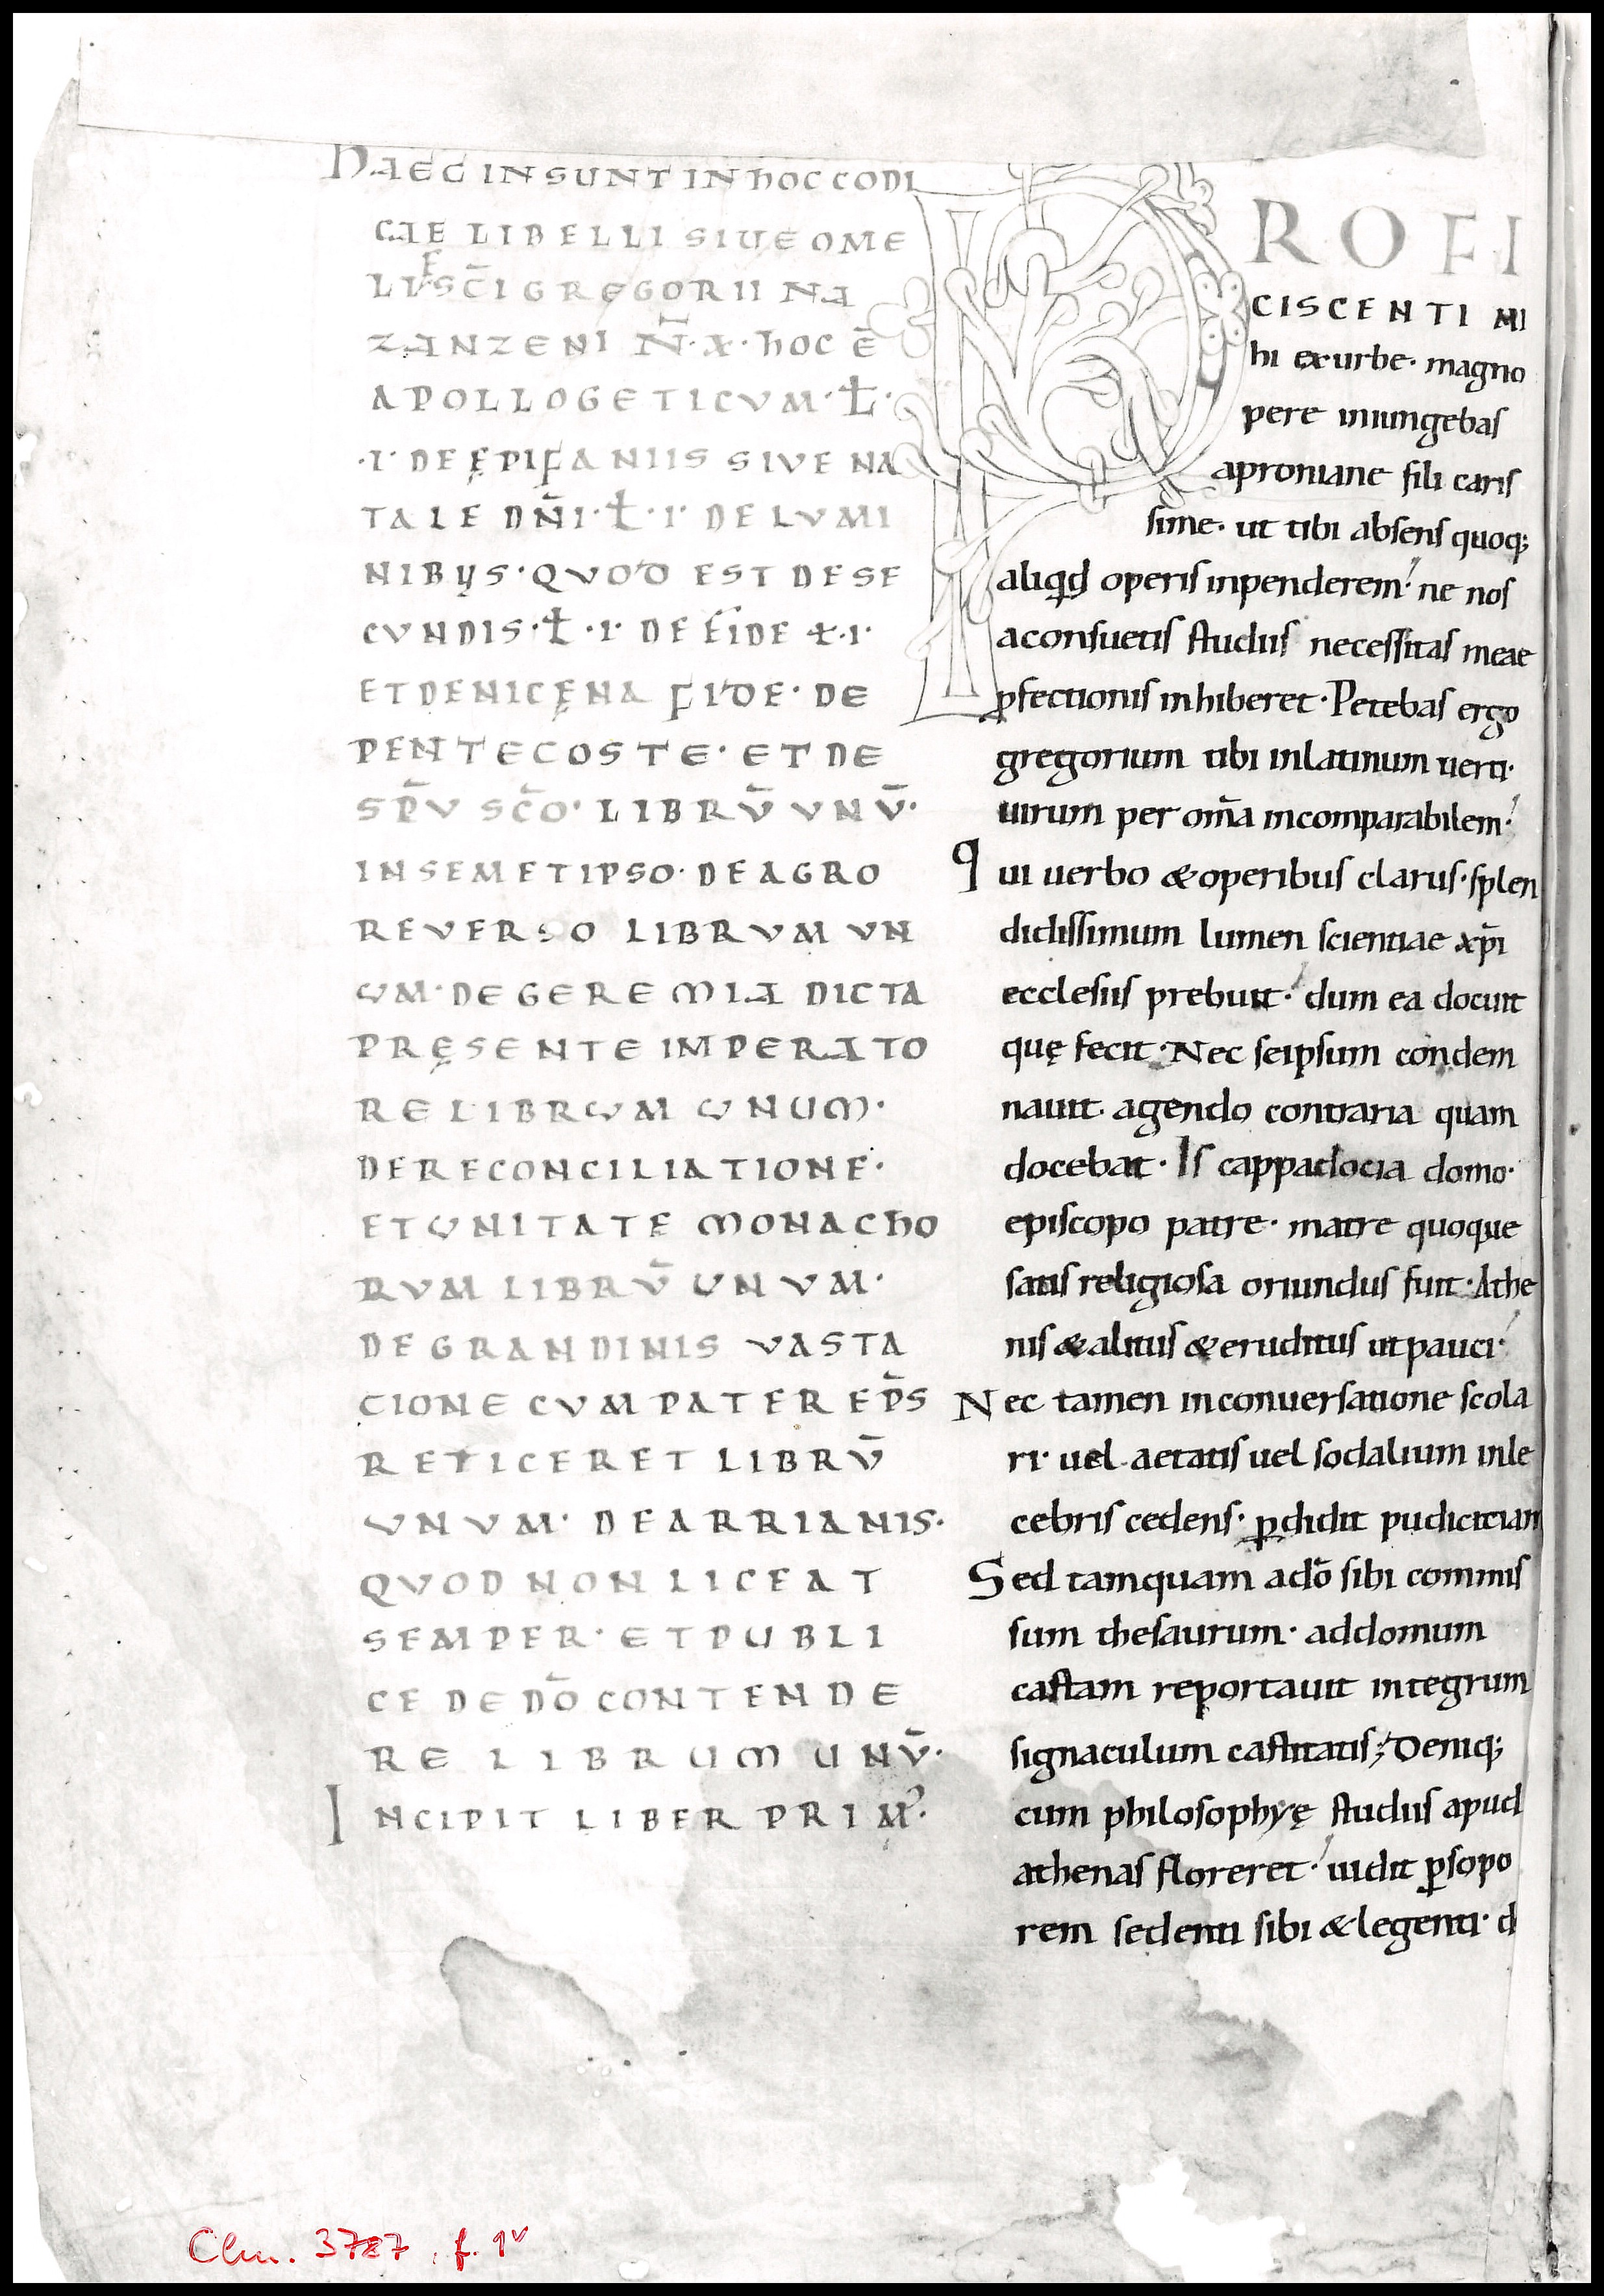 HAEC INSUNT IN hOC CODI
CAE LIBELLI SIUE OME
LIĘ SC̄I GREGORII NA
ZANZENI N̄·X· hOC Ē
APOLLOGETICVM· Ł·
·I· DE ĘPIFANIIS SIVE NA
TALE DN̄I· Ł·I· DE LVMI
NIBUS· QVOD EST DE SE
CVNDIS· Ł·I· DE FIDE Ł·I·
ET DE NICĘNA FIDE· DE
PENTECOSTE· ET DE
SP̄V SC̄O· LIBRV̄ VNV̄·
IN SEMETIPSO· DE AGRO
REVERSO LIBRVM VN
UM· DE GEREMIA DICTA
PRĘSENTE IMPERATO
RE LIBRUM UNUM·
DE RECONCILIATIONE·
ET UNITATE MONAChO
RVM LIBRV̄ UNVM·
DE GRANDINIS VASTA
CIONE CVM PATER EP̄S
RETICERET LIBRV̄
UNVM· DE ARRIANIS·
QVOD NON LICEAT
SEMPER· ET PUBLI
CE DE DŌ CONTENDE
RE LIBRUM UNV̄·
INCIPIT LIBER PRIM᾽·
PROFI
CISCENTI MI
hi ex urbe· magno
pere iniungebas
aproniane fili caris
sime· ut tibi absens quoq;
aliqđ operis inpenderem· ne nos
a consuetis studiis necessitas meae
ꝑfectionis inhiberet· Petebas ergo
gregorium tibi in latinum uerti·
uirum per om̄a incomparabilem·
qui uerbo & operibus clarus· splen
didissimum lumen scientiae xp̄i
ecclesiis prebuit· dum ea docuit
quę fecit· Nec seipsum condem
nauit· agendo contraria quam
docebat· Is cappadocia domo·
episcopo patre· matre quoque
satis religiosa oriundus fuit· Athe
nis & alitus & eruditus ut pauci·
Nec tamen in conuersatione scola
ri· uel aetatis uel sodalium inle
cebris cedens· ꝑdidit pudicitiam
Sed tamquam a dō sibi commis
sum thesaurum· ad domum
castam reportauit integrum
signaculum castitatis; Deniq;
cum philosophyę studiis apud
athenas floreret· uidit ꝑ sopo
rem sedenti sibi & legenti· d
Clm. 3787, f. 1v